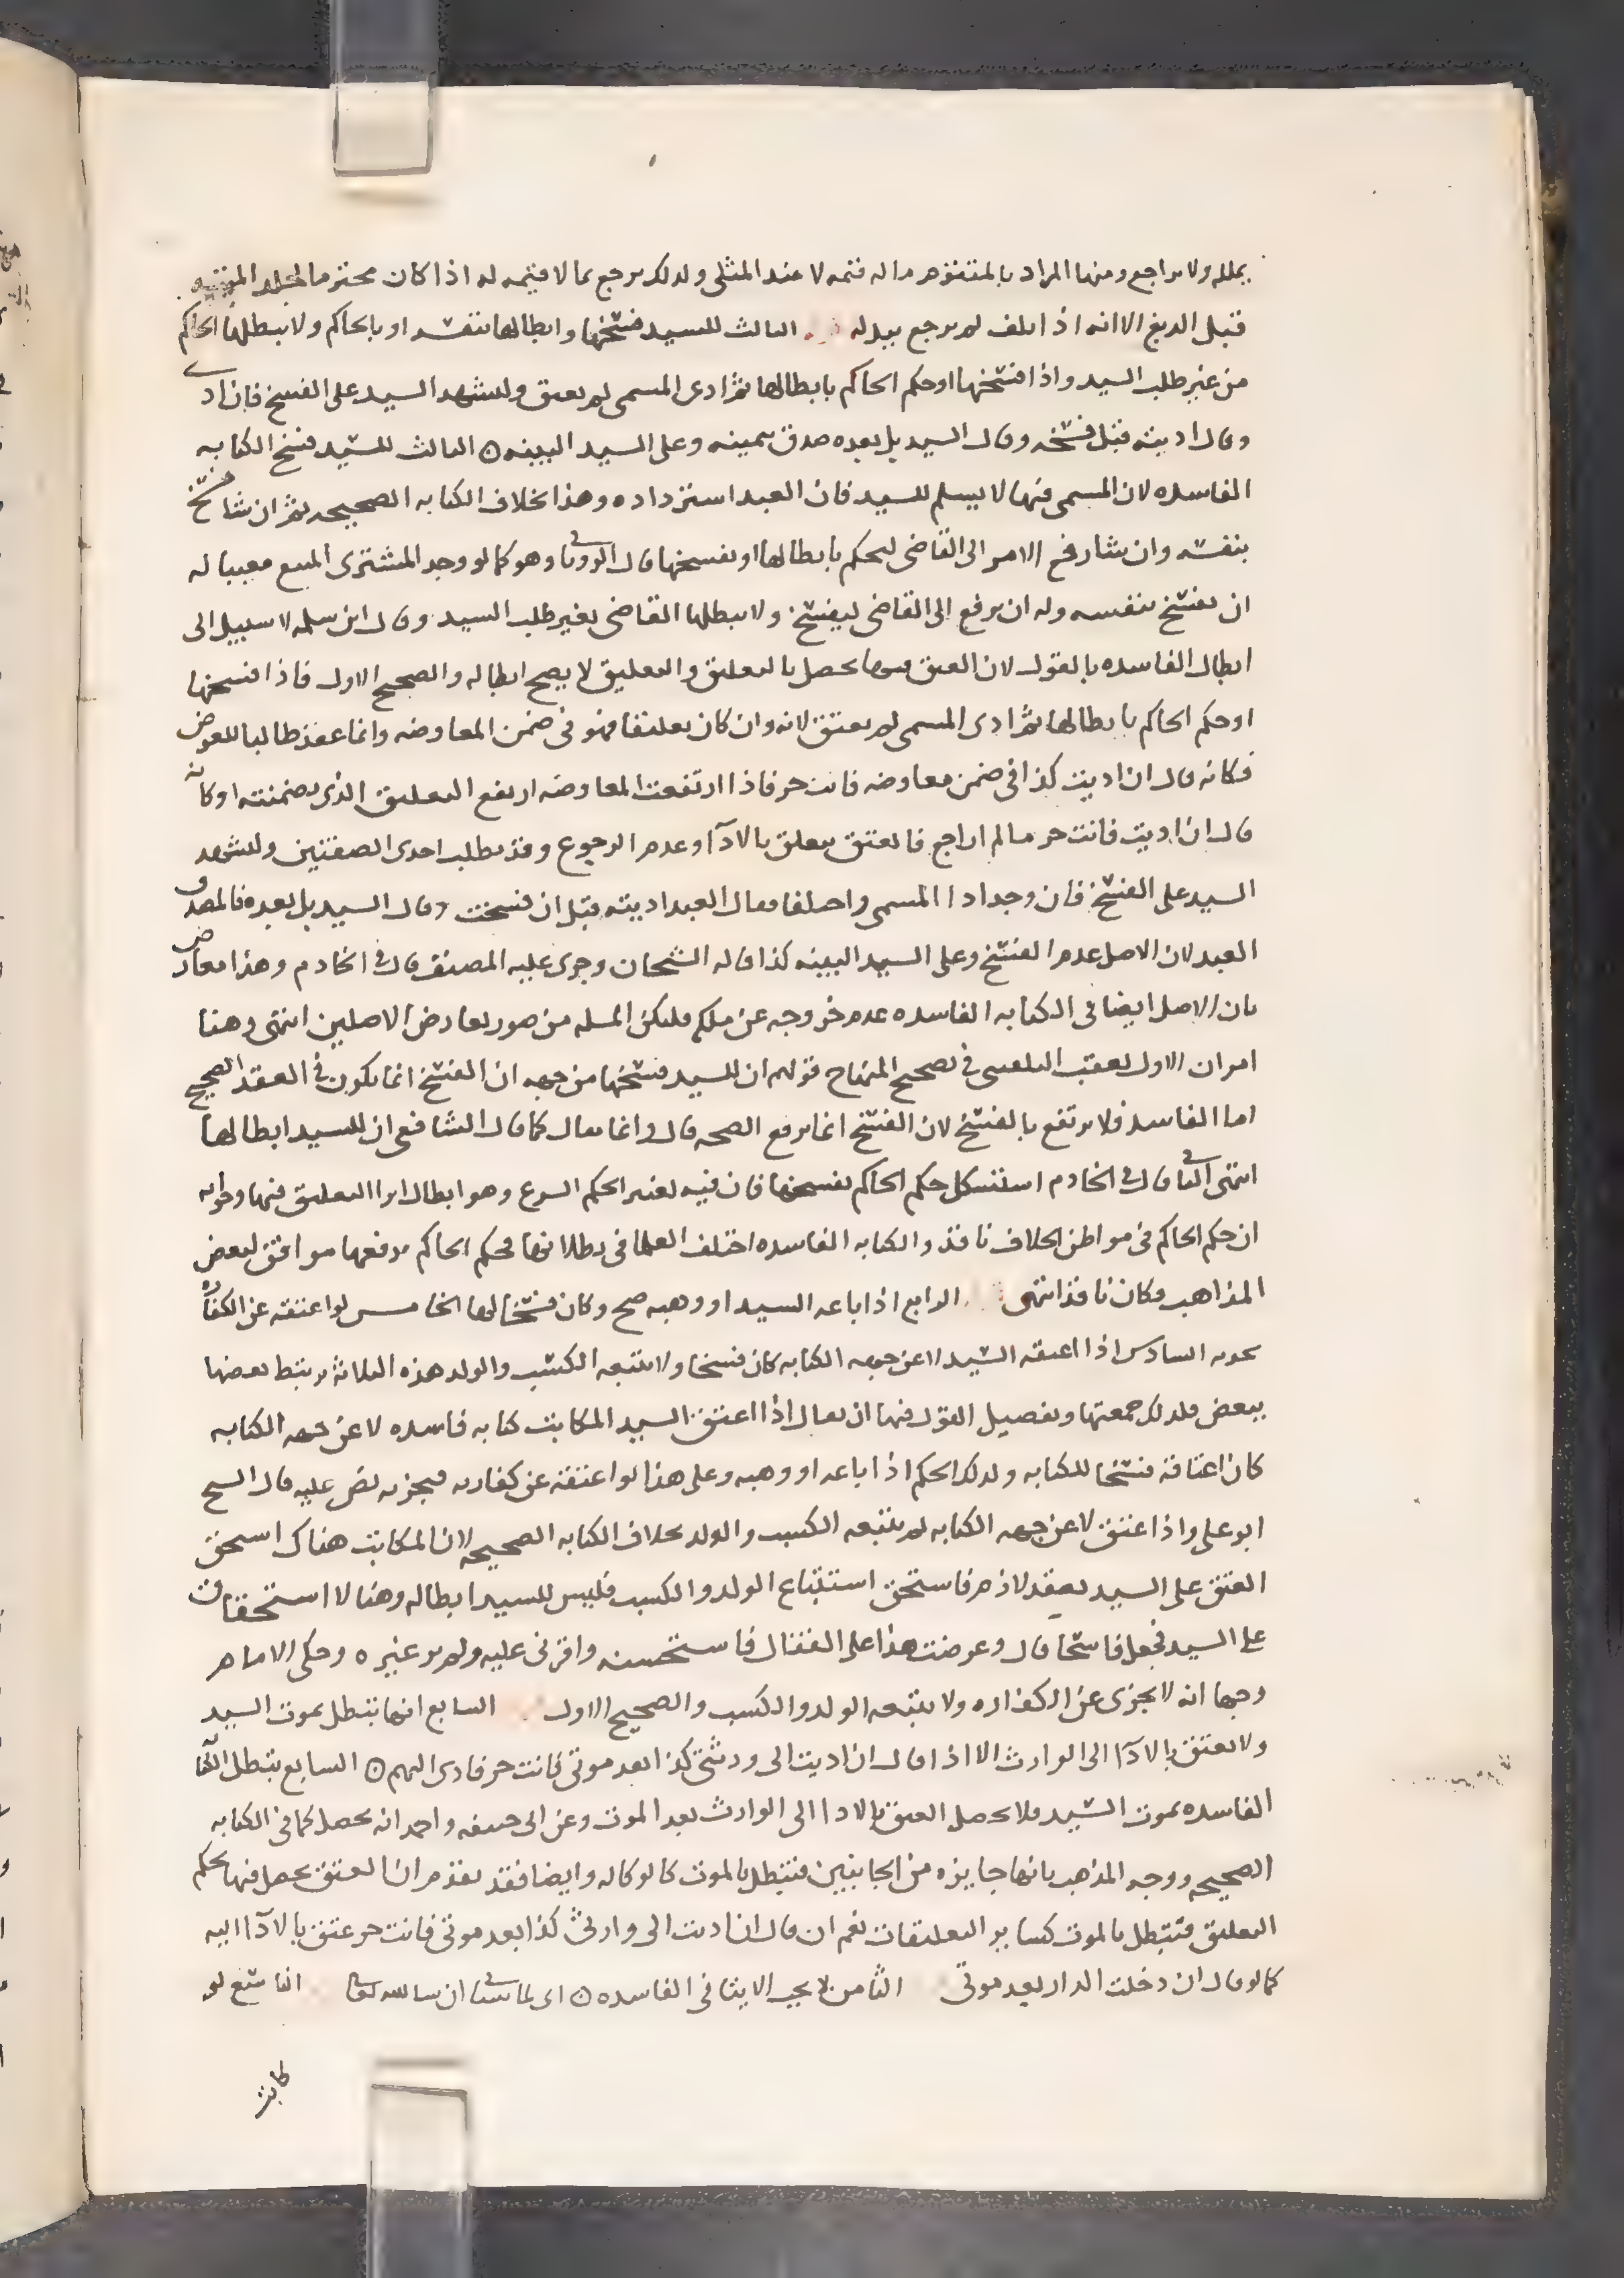 يملكه ولا يراجع ومنها المراد بالمتقوم ما له قيمة لا عند المثلى ولذلك يرجع بما لا قيمه له اذا كان محترما كجلد الميتة
قبل الدبغ الا انه اذا تلف لم يرجع ببدله الثالث للسيد فسخها وابطالها بنفسه او بالحاكم ولا يبطلها الحاكم
من غير طلب السيد واذا فسخها او حكم الحاكم بابطالها ثم ادى المسمى لم يعتق وليشهد السيد على الفسخ فان ادى
وقال اديته قبل فسخه وقال السيد بل بعده صدق بيمينه وعلى السيد البينه ن الثالث للسيد فسخ الكتابه
الفاسده لان المسمى فيها لا يسلم للسيد فان للعبد استرداده وهذا بخلاف الكتابه الصحيحه ثم ان شا فسخ
بنفسه وان شا رفع الامر الى القاضى ليحكم بابطالها او بفسخها قال الرويانى وهو كما لو وجد المشترى المبيع معيبا له
ان يفسخ بنفسه وله ان يرفع الى القاضى ليفسخ ولا يبطلها القاضى بغير طلب السيد وقال ابن سلمه لا سبيل الى
ابطال الفاسده بالقول لان العتق فيها يحصل بالتعليق والتعليق لا يصح ابطاله والصحيح الاول فاذا فسخها
او حكم الحاكم بابطالها ثم ادى المسمى لم يعتق لانه وان كان تعليقا فهو فى ضمن المعاوضه وانما عقد طالبا للعوض
فكانه قال ان اديت كذا فى ضمن معاوضه فانت حر فاذا ارتفعت المعاوضه ارتفع التعليق الذى تضمنته او كانه
قال ان اديت فانت حر ما لم اراجع فالعتق يتعلق بالادآ وعدم الرجوع وقد بطلت احدى الصفتين وليشهد
السيد على الفسخ فان وجد ادا المسمى واختلفا فقال العبد اديته قبل ان فسخت وقال السيد بل بعده فالمصدق
العبد لان الاصل عدم الفسخ وعلى السيد البينه كذا قاله الشيخان وجرى عليه المصنف قال فى الخادم وهذا معارض
بان الاصل ايضا فى الكتابه الفاسده عدم خروجه عن ملكه فليكن المسله من صور تعارض الاصلين انتهى وهنا
امران الاول تعقب البلقينى فى تصحيح المنهاج قولهم ان للسيد فسخها من جهه ان الفسخ انما يكون فى العقد الصحيح
اما الفاسد فلا يرتفع بالفسخ لان الفسخ انما يرفع الصحه قال وانما يقال كما قال الشافعى ان للسيد ابطالها
انتهى الثانى قال فى الخادم استشكل حكم الحاكم بفسخها فان فيه تغيير الحكم الشرع وهو ابطال اثر التعليق فيها وجوابه
ان حكم الحاكم فى مواطن الخلاف نافذ والكتابه الفاسده اختلف العلما فى بطلانها فحكم الحاكم برفعها موافق لبعض
المذاهب فكان نافذا انتهى الرابع اذا باعه السيد او وهبه صح وكان فسخا لها الخامس لو اعتقه عن الكفاره
يجزيه السادس اذا اعتقه السيد لا عن جهه الكتابه كان فسخا ولا يتبعه الكسب والولد هذه الثلاثه يرتبط بعضها
ببعض فلذلك جمعتها وتفصيل القول فيها ان يقال اذا اعتق السيد المكاتب كتابه فاسده لا عن جهه الكتابه
كان اعتاقه فسخا للكتابه وكذلك الحكم اذا باعه او وهبه وعلى هذا لو اعتقه عن كفارته فيجزيه نص عليه قال الشيخ
ابو على واذا عتق لا عن جهه الكتابه لم يتبعه الكسب والولد بخلاف الكتابه الصحيحه لان المكاتب هناك استحق
العتق على السيد بعقد لازم فاستحق استتباع الولد والكسب فليس للسيد ابطاله وهنا لا استحقاق
على السيد فجعل فاسخا قال وعرضت هذا على القفال فاستحسنه واقرنى عليه ولم ير غيره وحكى الامام
وجها انه لا يجزى عن الكفاره ولا يتبعه الولد والكسب والصحيح الاول السابع انها تبطل بموت السيد
ولا يعتق بالادآ الى الوارث الا اذا قال ان اديت الى ورثتى كذا بعد موتى فانت حر فادى اليهم ن السابع تبطل الكتابة
الفاسده بموت السيد فلا يحصل العتق بالادا الى الوارث بعد الموت وعن ابى حنيفه واحمد انه يحصل كما فى الكتابه
الصحيحه ووجه المذهب بانها جايزه من الجانبين فتبطل بالموت كالوكاله وايضا فقد تقدم ان العتق يحصل فيها بحكم
التعليق فتبطل بالموت كساير التعليقات نعم ان قال ان اديت الى وارثى كذا بعد موتى فانت حر عتق بالادآ اليه
كما لو قال ان دخلت الدار بعد موتى الثامن لا يجب الايتا فى الفاسده ن اى لما سياتى ان شا الله تعالى التاسع لو
كاتب